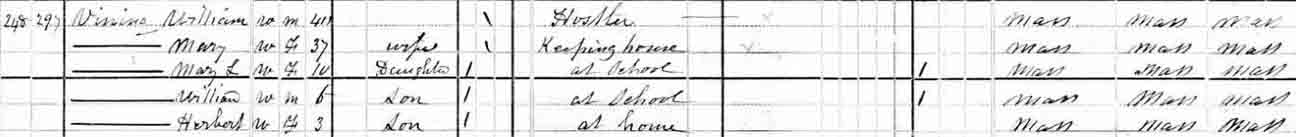 248 297 Vining William W M 40 \ Hostler Mass Mass Mass
—— Mary W F 37 wife \ Keeping house Mass Mass Mass
—— Mary L W F 10 Daughter / at School / Mass Mass Mass
—— William W M 6 Son / at School / Mass Mass Mass
—— Herbert W F 3 Son / at home Mass Mass Mass